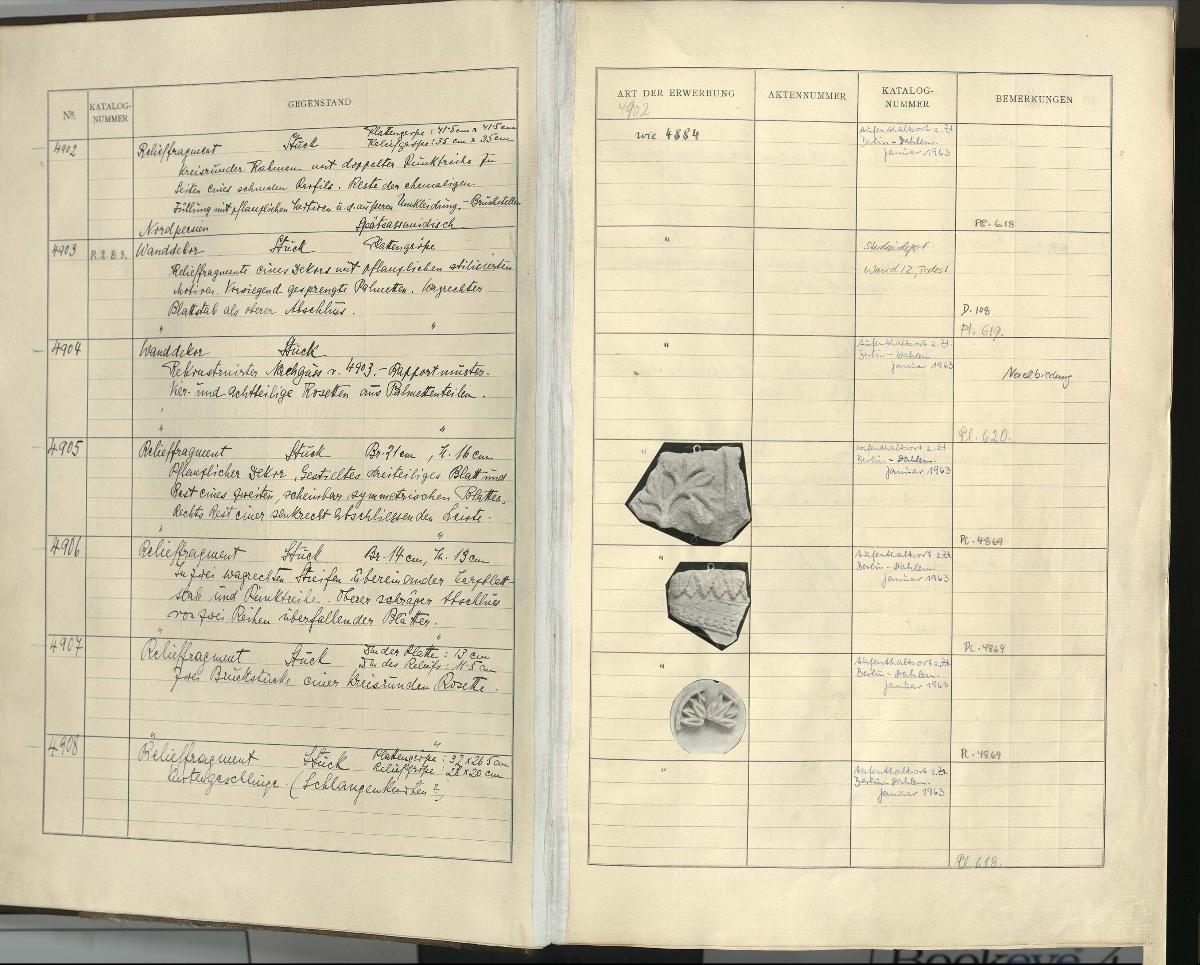 Nr.
KATALOG-
NUMMER
GEGENSTAND
4902
Relieffragment Stuck Plattengröße: 41·5cm x 41·5cm
Reliefgröße: 35 cm x 35cm
Kreisrunder Rahmen mit doppelter Punktreihe zu
Seiten eines schmalen Profils. Reste der ehemaligen
Füllung mit pflanzlichen Motiven u. d. äußeren Umkleidung. - Bruchstellen
Nordpersien Spätsassanidisch
4903
R. 2. B. 3.
Wanddekor Stuck Plattengröße
Relieffragmente eines Dekors mit pflanzlichen stilisierten
Motiven. Vorwiegend gesprengte Palmetten. Wagrechter
Blattstab als oberer Abschluss.
" "
4904
Wanddekor Stuck
Rekonstruierter Nachguss v. 4903. - Rapportmuster.
Vier- und achtteilige Rosetten aus Palmettenteilen.
" "
4905
Relieffragment Stuck Br. 21cm, H. 16cm
Pflanzlicher Dekor. Gestieltes dreiteiliges Blatt und
Rest eines zweiten, scheinbar symmetrischen Blattes.
Rechts Rest einer senkrecht abschliessenden Leiste.
" "
4906
Relieffragment Stuck Br. 14cm, H. 13cm
In zwei wagrechten Streifen übereinander
stab und Punktreihe. Oberer schräger Abschluss
von zwei Reihen überfallender Blätter.
" "
4907
Relieffragment Stuck Dm der Platte: 13 cm
Dm des Reliefs: 11·5cm
Zwei Bruchstücke einer kreisrunden Rosette.
" "
4908
Relieffragment Stuck Plattengröße: 32x26·5cm
Reliefgröße: 28x20cm
(Schlangenknoten?)
ART DER ERWERBUNG
AKTENNUMMER
KATALOG-
NUMMER
BEMERKUNGEN
4902
wie 4884
Aufenthaltsort z. Zt.
Berlin-Dahlem.
Januar 1963
Pl. 618
"
Studiendepot
Wand 12, Podest
D. 108
Pl. 619.
"
Aufenthaltsort z. Zt.
Berlin-Dahlem.
Januar 1963
Nachbildung.
Pl. 620.
"
Aufenthaltsort z. Zt.
Berlin-Dahlem.
Januar 1963
Pl. 4869
"
Aufenthaltsort z. Zt.
Berlin-Dahlem.
Januar 1963
Pl. 4869
"
Aufenthaltsort z. Zt.
Berlin-Dahlem.
Januar 1963
Pl. 4869
"
Aufenthaltsort z. Zt.
Berlin-Dahlem.
Januar 1963
Pl. 618.
Bookeye 4